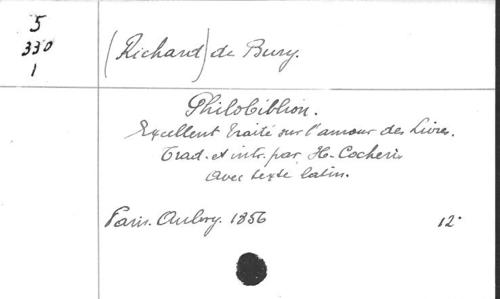 5
330
1
(Richard) de Bury.
Philobiblion.
Excellent traité sur l'amour des Livres.
Trad. et intr. par H. Cocheris
avec texte latin.
Paris. Aubry. 1856
12°